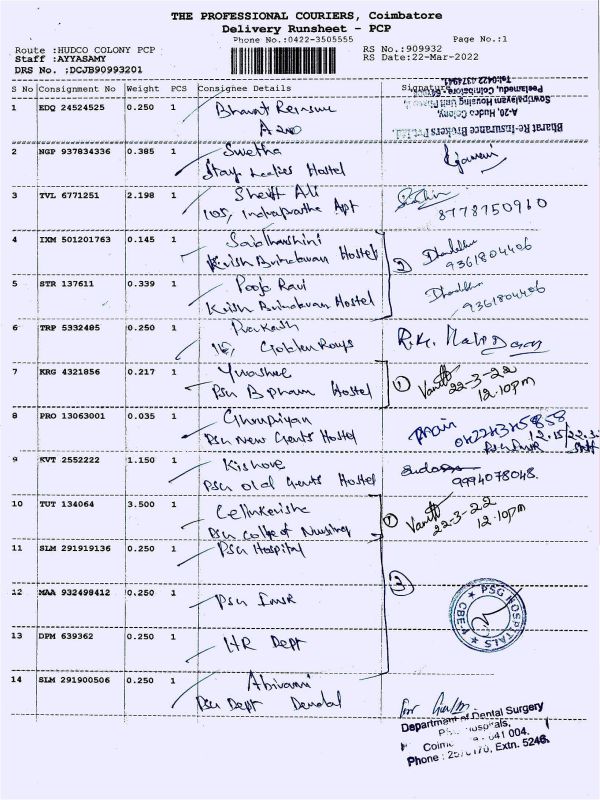 THE PROFESSIONAL COURIERS, Coimbatore
Delivery Runsheet - PCP
Phone No.:0422-3505555
Page No.:1
Route :HUDCO COLONY PCP
RS No.:909932
Staff :AYYASAMY
RS Date:22-Mar-2022
DRS No. :DCJB90993201
S No Consignment No Weight PCS Consignee Details Signature
Bharat Re-Insurance Brokers Pvt.Ltd.
A-20, Hudco Colony,
Sowripalayam Housing Unit Phase
Peelamedu, Coimbatore
Tel:0422 4374941
1 EDQ 24524525 0.250 1 Bharat Reinsure
A 20
2 NGP 937834336 0.385 1 Swetha
Stay Ladies Hostel
3 TVL 6771251 2.198 1 Sheift Ali
105, Indraprastha Apt
8778750910
4 IXM 501201763 0.145 1
Krish Brindavan Hostel
2
9361804406
5 STR 137611 0.339 1 Pooja Ravi
Krish Brindavan Hostel
9361804406
6 TRP 5332485 0.250 1 Prakash
Golden Rays
R.K.
7 KRG 4321856 0.217 1
Psg B pham Hostel
1
22-3-22
12.10pm
8 PRO 13063001 0.035 1
Psg New Gents Hostel
12.15
9 KVT 2552222 1.150 1 Kishore
Psg old Gents Hostel
9994078048.
10 TUT 134064 3.500 1
Psg College of Nursing
1
22-3-22
12.10pm
11 SLM 291919136 0.250 1 Psg Hospital
12 MAA 932498412 0.250 1 Psg Imsr
3
PSG HOSPITALS
CBE-4
13 DPM 639362 0.250 1 HR Dept
14 SLM 291900506 0.250 1 Abirami
Psg Dept Dendal
Department of Dental Surgery
Hospitals,
641 004.
Phone : Extn. 5246.